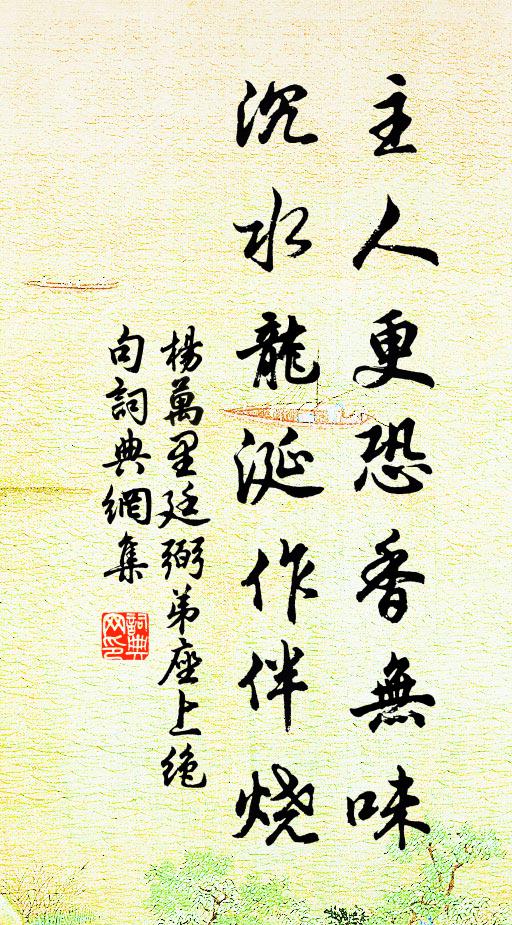 主人更恐香無味
沉水龍涎作伴燒
楊萬里廷弼弟座上絕
句詞典網集
詞典
网印